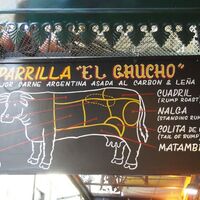 PARRILLA "EL GAUCHO"
JOR CARNE ARGENTINA ASADA AL CARBON & LEÑA
CUADRIL
(RUMP ROAST)
NALGA
(STANDING RUM
COLITA DE C
(TAIL OF RUMP
MATAMB